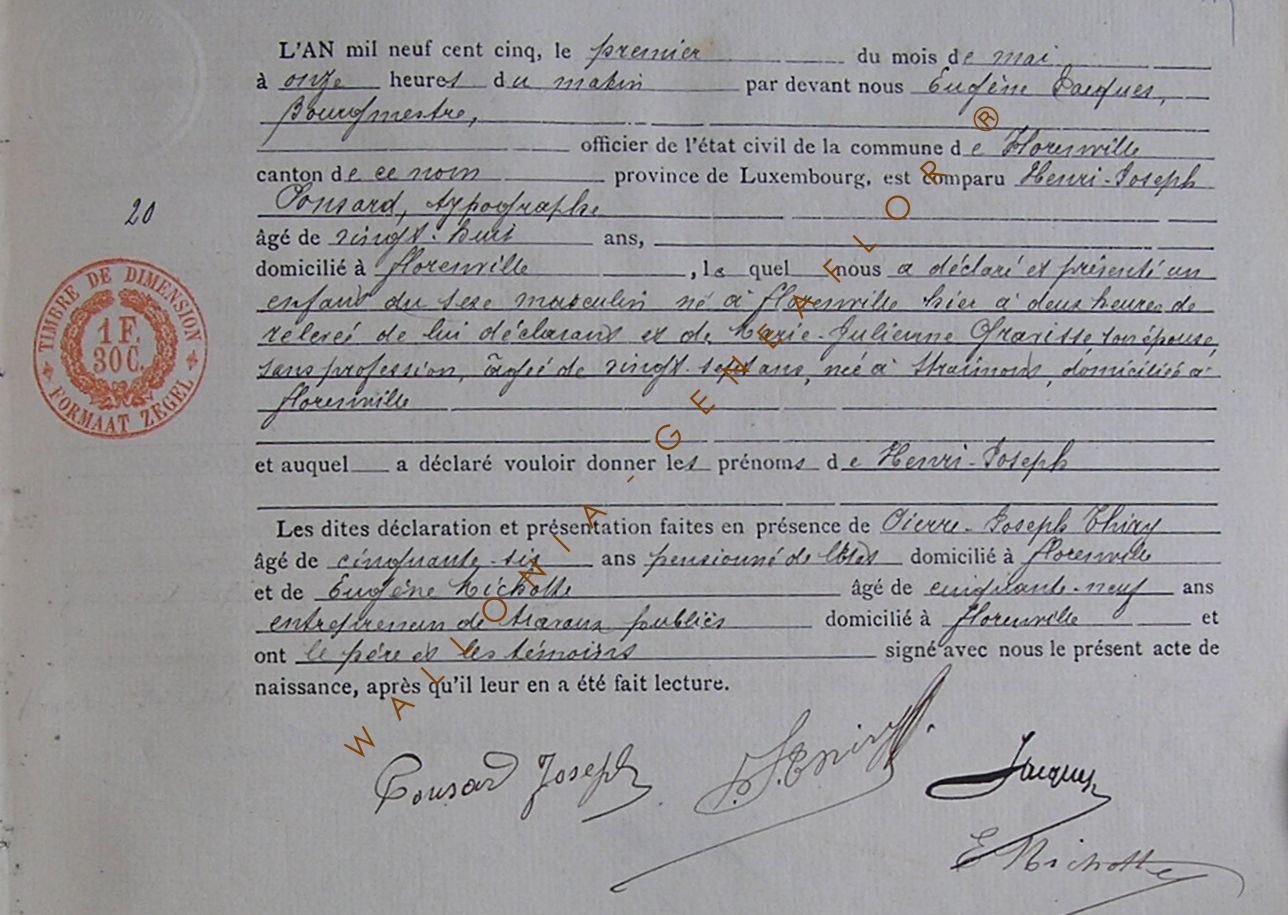 L'AN mil neuf cent cinq, le premier du mois de mai
à onze heures du matin par devant nous Eugène Jacques,
Bourgmestre,
officier de l'état civil de la commune de Florenville
canton de ce nom province de Luxembourg, est comparu Henri-Joseph
Ponsard, typographe
20
âgé de vingt-huit ans,
domicilié à Florenville, lequel nous a déclaré et présenté un
enfant du sexe masculin né à Florenville hier à deux heures de
relevée de lui déclarant et de Marie-Julienne Gravisse son épouse,
sans profession, âgée de vingt-sept ans, née à Straimont, domiciliée à
Florenville
TIMBRE DE DIMENSION
1 F.
30 C.
FORMAAT ZEGEL
et auquel a déclaré vouloir donner les prénoms de Henri-Joseph
Les dites déclaration et présentation faites en présence de Pierre-Joseph Thiry
âgé de cinquante-six ans pensionné de l'Etat domicilié à Florenville
et de Eugène Michotte âgé de cinquante-neuf ans
entrepreneur de travaux publics domicilié à Florenville et
ont le père et les témoins signé avec nous le présent acte de
naissance, après qu'il leur en a été fait lecture.
Ponsard Joseph P.J. Thiry Jacques
E Michotte
WALLONIA-GENEAFLOR®